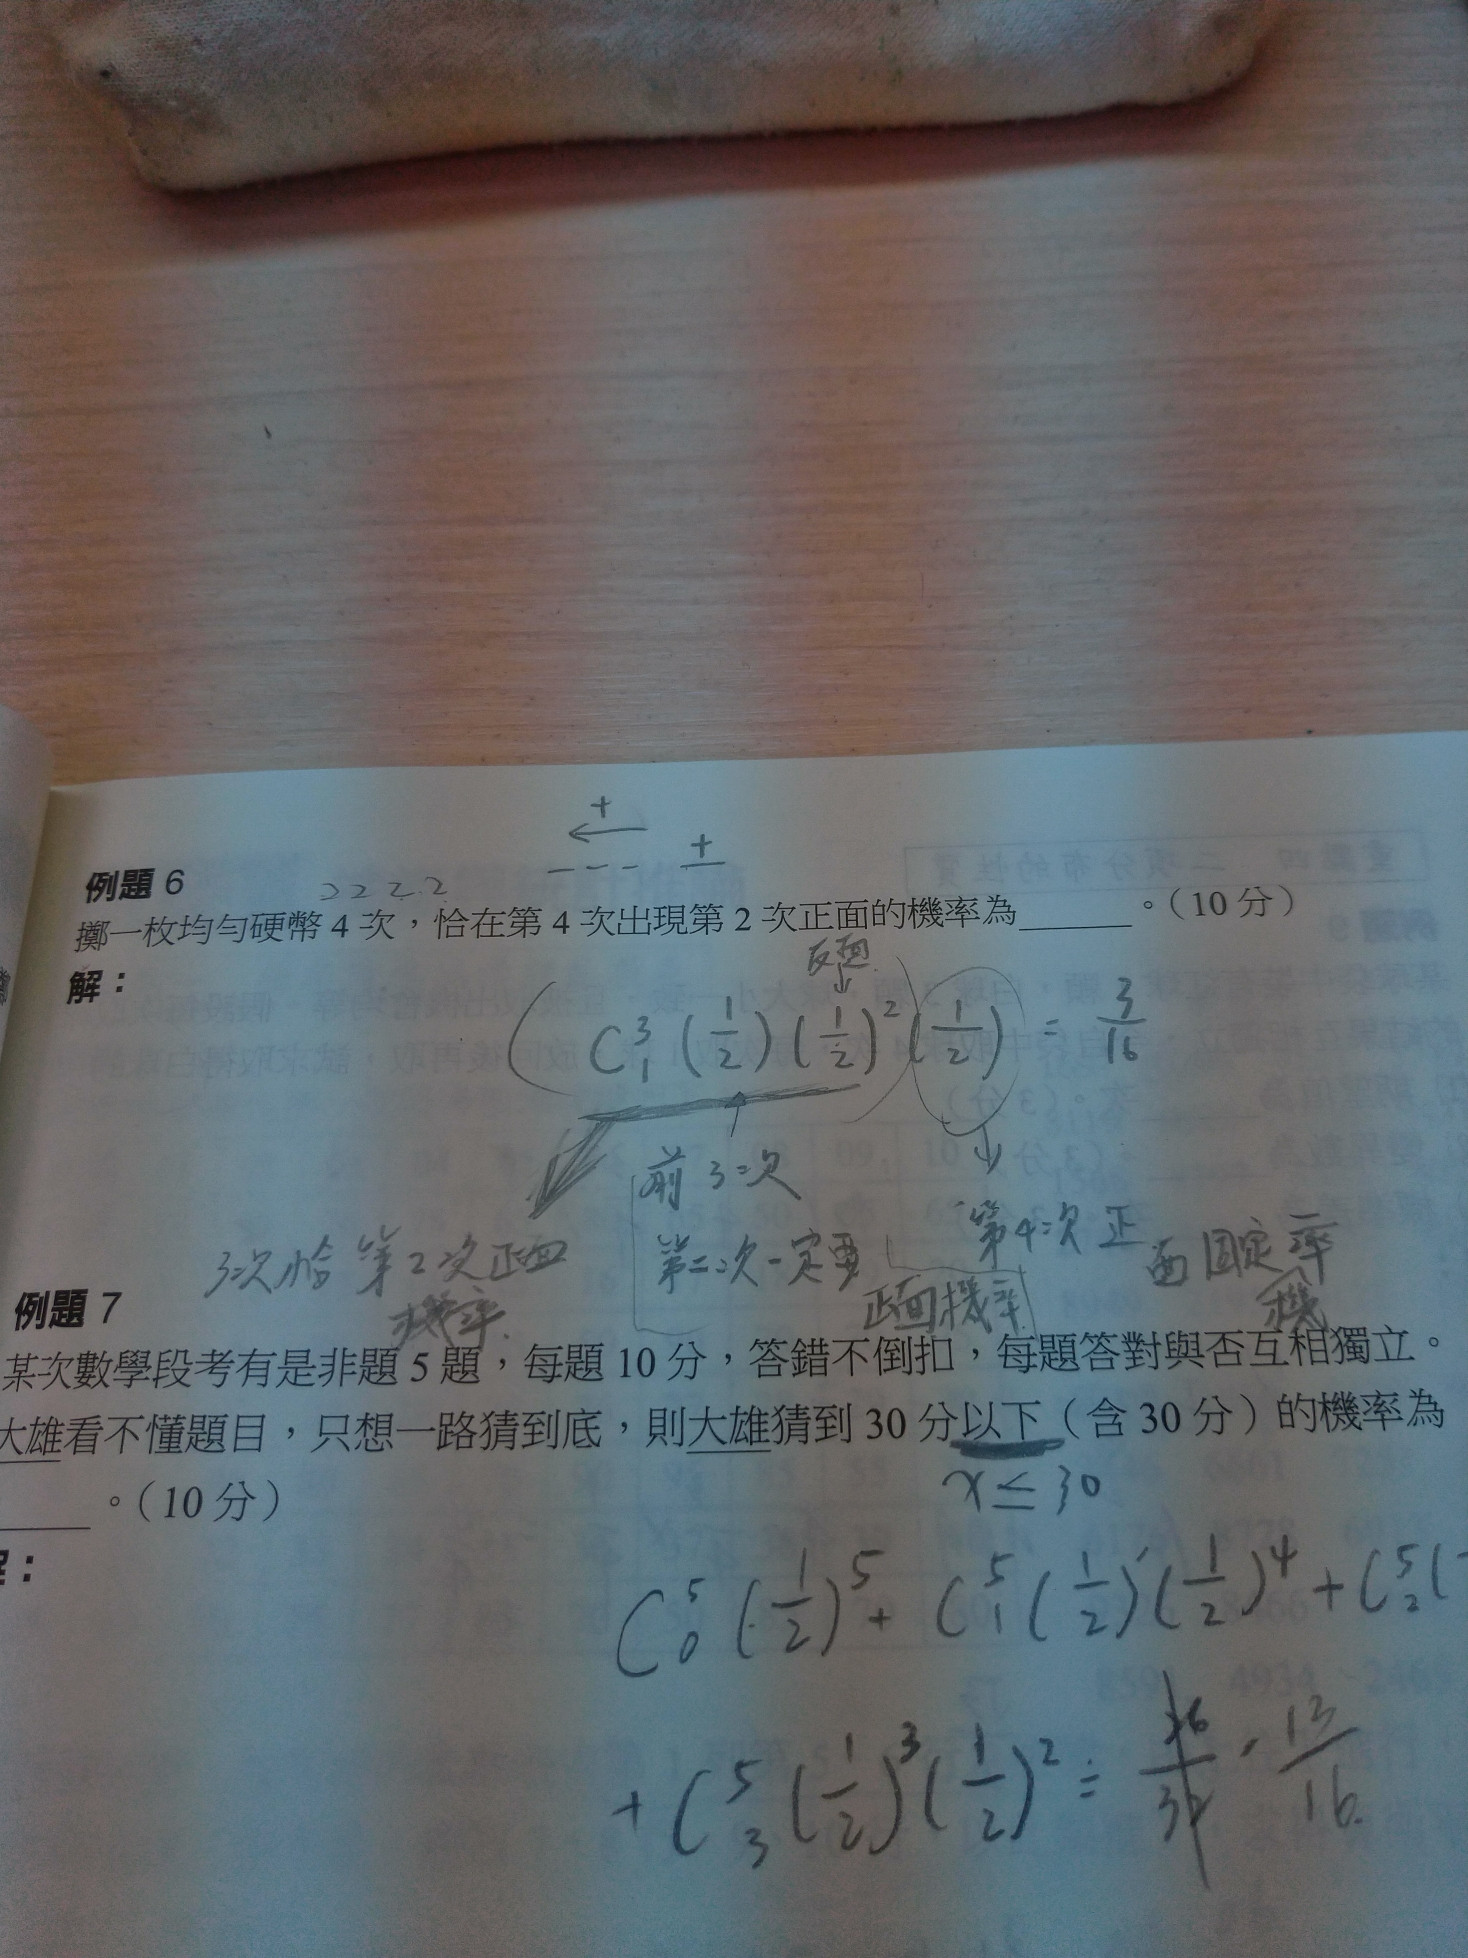 +
← +
例題 6
2 2 2 2
擲一枚均勻硬幣 4 次，恰在第 4 次出現第 2 次正面的機率為______。（10 分）
反面
解：
( C³₁ (1/2) (1/2)² ) (1/2) = 3/16
前 3 次
第二次一定要
正面機率
第4次正面固定機率
3次恰第2次正面
機率
例題 7
某次數學段考有是非題 5 題，每題 10 分，答錯不倒扣，每題答對與否互相獨立。
大雄看不懂題目，只想一路猜到底，則大雄猜到 30 分以下（含 30 分）的機率為
______。（10 分）
x ≤ 30
：
C⁵₀ (1/2)⁵ + C⁵₁ (1/2)¹ (1/2)⁴ + C⁵₂ (
+ C⁵₃ (1/2)³ (1/2)² = 13/16